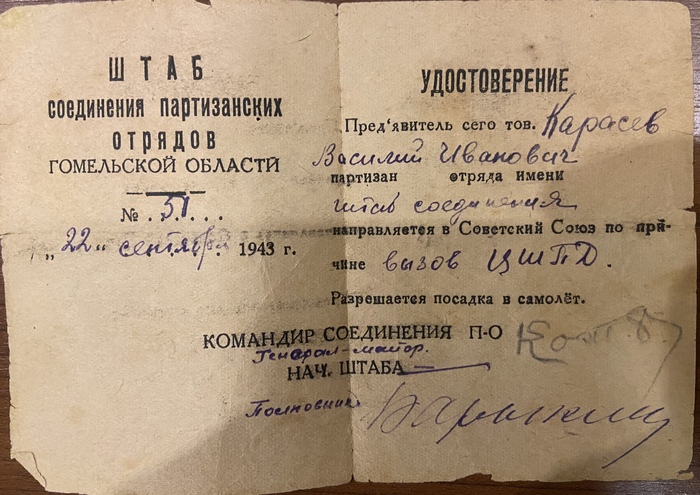 ШТАБ
соединения партизанских
отрядов
ГОМЕЛЬСКОЙ ОБЛАСТИ
№ . 51 . . .
„22" сентября 1943 г.
УДОСТОВЕРЕНИЕ
Пред'явитель сего тов. Карасев
Василий Иванович
партизан отряда имени
штаб соединения
направляется в Советский Союз по при-
чине вызов ЦШПД.
Разрешается посадка в самолёт.
КОМАНДИР СОЕДИНЕНИЯ П-О
Генерал-майор.
НАЧ. ШТАБА
Полковник Барыкин